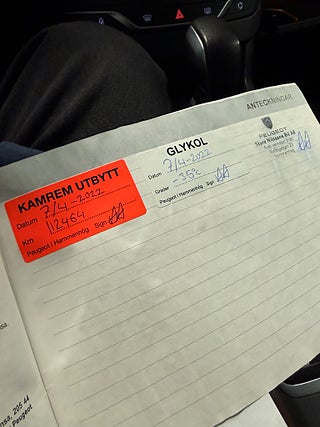 ANTECKNINGAR
KAMREM UTBYTT
Datum 7/4-2022
Km 112464
Peugeot i Hammenhög Sign
GLYKOL
Datum 7/4-2022
Grader -35°C
Peugeot i Hammenhög Sign
PEUGEOT
Sture Nilssons Bil AB
nsa, 205 44
Peugeot